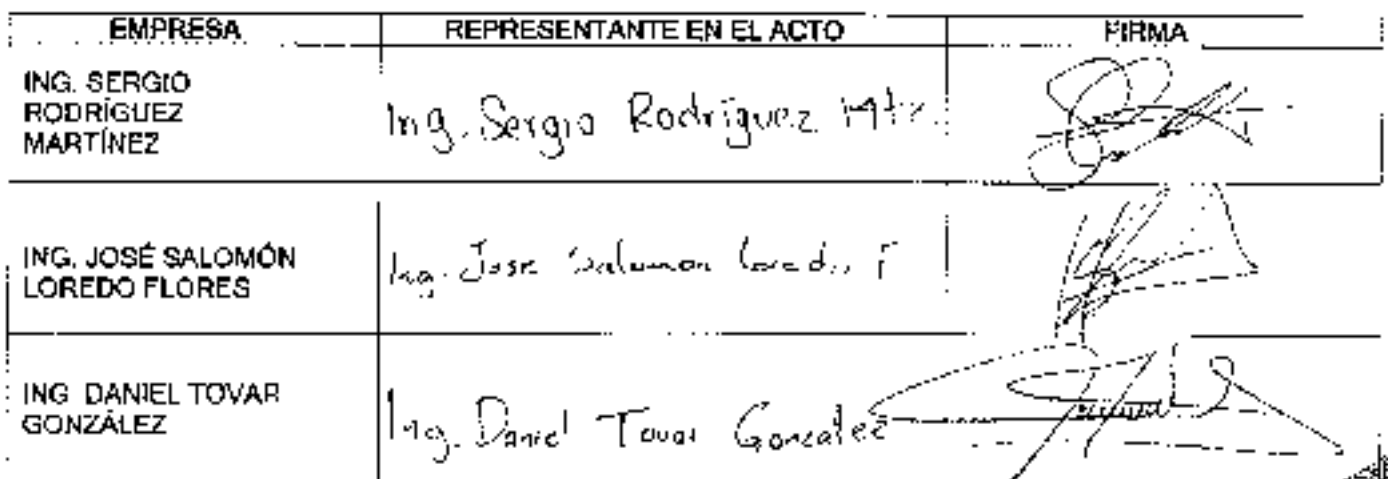 EMPRESA REPRESENTANTE EN EL ACTO FIRMA
ING. SERGIO
RODRÍGUEZ
MARTÍNEZ
Ing. Sergio Rodríguez Mtz.
ING. JOSÉ SALOMÓN
LOREDO FLORES
Ing. Jose Salomon Loredo F
ING. DANIEL TOVAR
GONZÁLEZ
Ing. Daniel Tovar Gonzalez